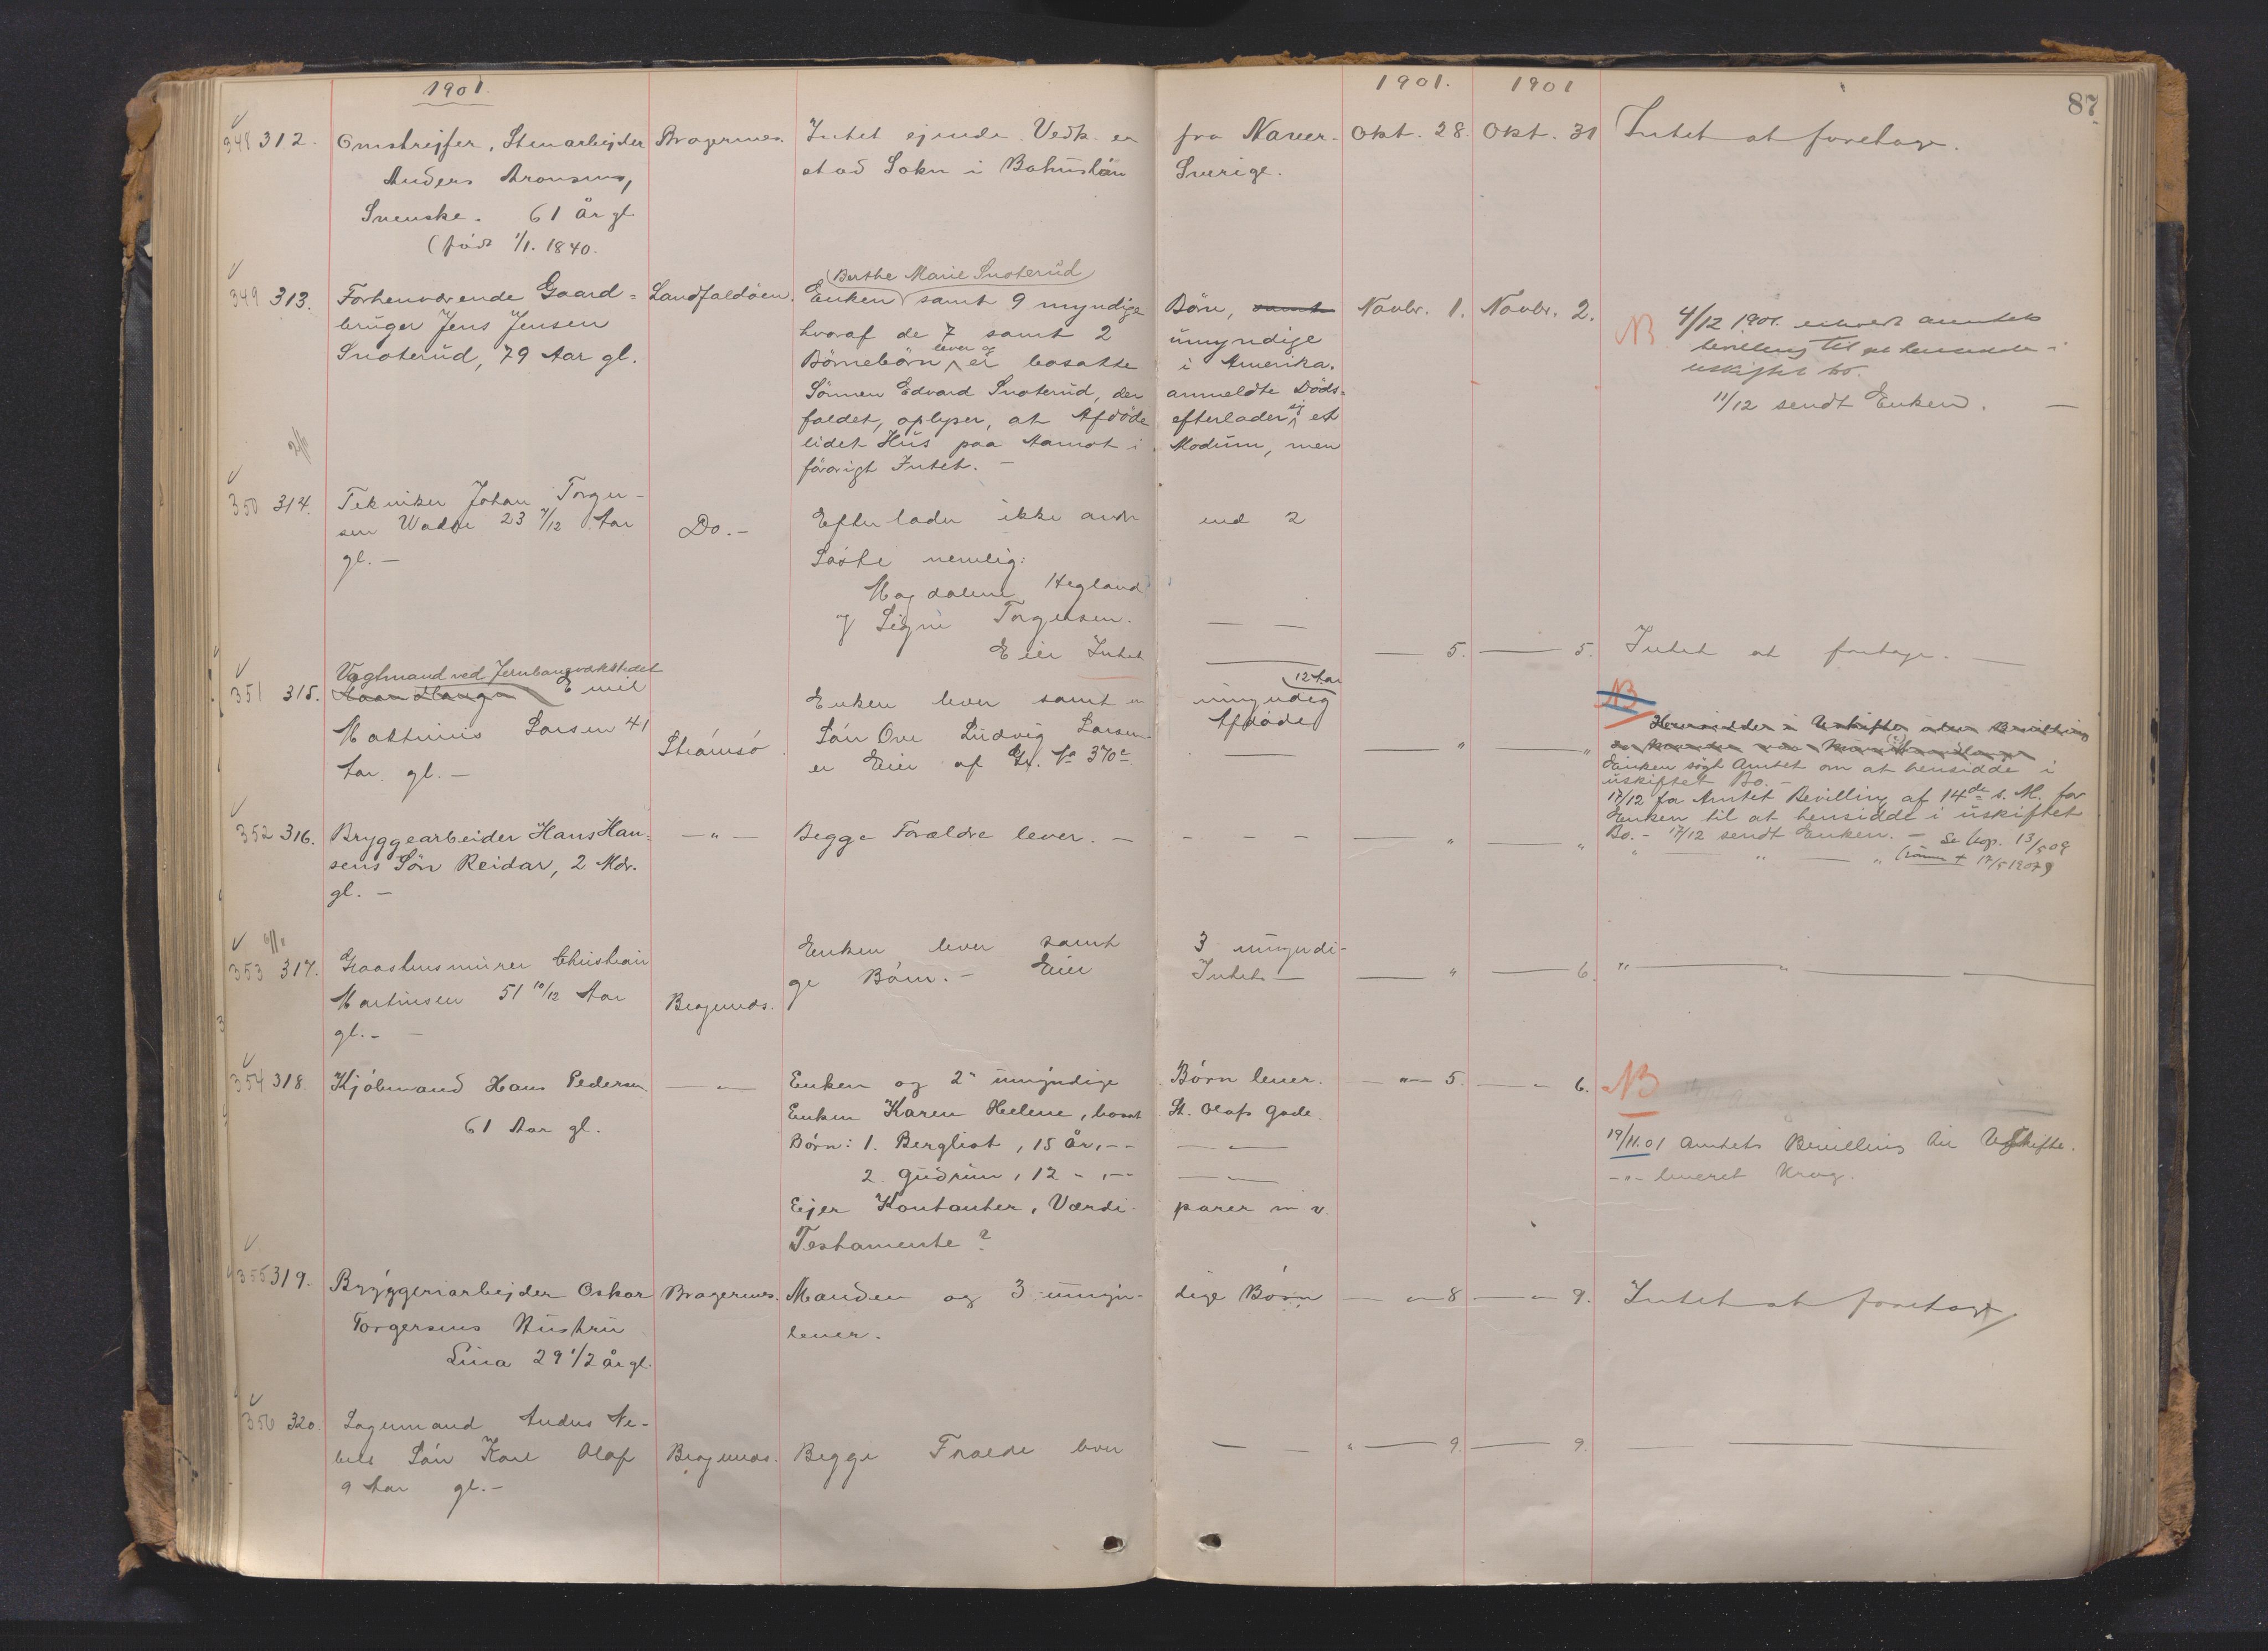 1901.
1901.
1901
87
348 312. Omstreifer, Stenarbejder Bragernes. Intet ejende. Vedk. er fra Naver- Okt. 28. Okt. 31 Intet at foretage.
Anders Aronsens, stad Sokn i Bahuslän Sverige.
Svenske. 61 år gl.
(född 1/1. 1840.
(Berthe Marie Snoterud)
349 313. Forhenværende Gaard- Landfaldöen. Enken samt 9 myndige Börn, samt Novbr. 1. Novbr. 2. NB 4/12 1901.
bruger Jens Jensen hvoraf de 7 samt 2 umyndige bevilling til at hensidde i
Snoterud, 79 Aar gl. Börnebörn lever og er bosatte i Amerika. uskiftet bo.
Sönnen Edvard Snoterud, der anmeldte Döds- 11/12 sendt Enken. —
faldet, oplyser, at Afdöde efterlader sig et
lidet Hus paa Aamot i Modum, men
2/11
förövrigt Intet. —
350 314. Tekniker Johan Torger-
sen 23 7/12 Aar Do. — Efterlader ikke andre end 2
gl. — Söstre nemlig:
Magdalene Hegland
og Signe Torgersen. — —
Eier Intet — 5. — 5. Intet at foretage. —
Vagtmand ved Jernbaneværkstedet
351 315. Emil Enken lever samt en umyndig 12 Aar NB
Mathinius Larsen 41 Strömsö. Sön Ove Ludvig Larsen. Afdöde — " — "
Aar gl. — er Eier af Gr. No 370c —
Enken sögt Amtet om at hensidde i
uskiftet Bo. —
17/12 fra Amtet Bevilling af 14de s. M. for
Enken til at hensidde i uskiftet
Bo. — 17/12 sendt Enken. — Se Kop. 13/5 09
352 316. Bryggearbeider Hans Han- — " — Begge Forældre lever. — — — — — " — " " — " — " 17/5 1907
sens Sön Reidar, 2 Mdr.
gl. —
6/11
353 317. Graastensmurer Christian Enken lever samt 3 umyndi-
Martinsen 51 10/12 Aar Bragernæs. ge Börn. — Eier Intet — — " — 6. " — " —
gl. —
354 318. Kjöbmand Hans Pedersen — " — Enken og 2 umyndige Börn lever. — " — 5. — " 6. NB
61 Aar gl. Enken Karen Helene, bosat St. Olafs Gade.
Börn: 1. Bergliot, 15 år, — — — " — 19/11.01 Amtets Bevilling til Uskifte.
2. Gudrun, 12 " , — — — " — — " — leveret Krag.
Ejer Kontanter, Værdi- parer m. v.
Testamente?
355 319. Bryggeriarbejder Oskar Bragernes. Manden og 3 umyn- dige Börn — " 8 — " 9. Intet at foretage.
Torgersens Hustru lever.
Lina 29 1/2 år gl.
356 320. Lagermand Anders Ne-
bels Sön Karl Olaf Bragernæs. Begge Forældre lever — — " — 9. — 9. — —
9 Aar gl. —